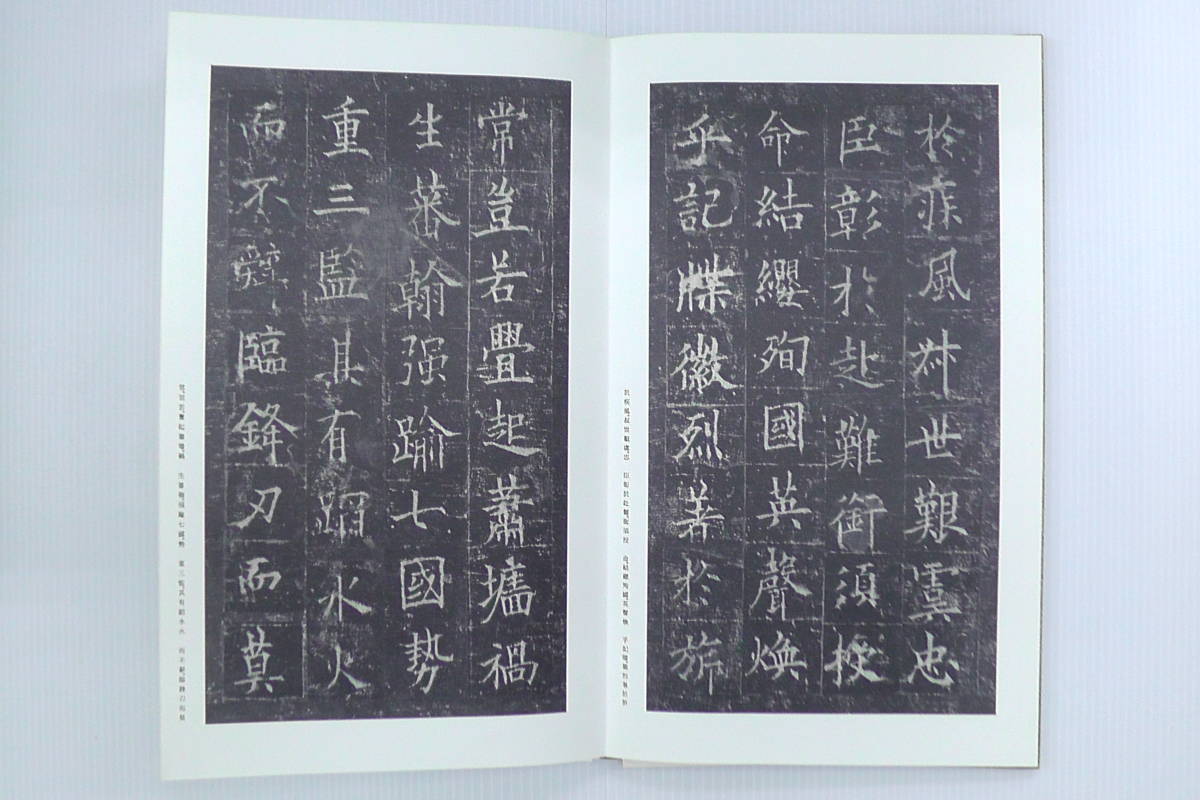 於疾風叔世艱虞忠
臣彰於赴難銜須授
命結纓殉國英聲煥
乎記牒徽烈著於旂
常豈若舋起蕭墻禍
生蕃翰强踰七國勢
重三監其有蹈水火
而不辭臨鋒刃而莫